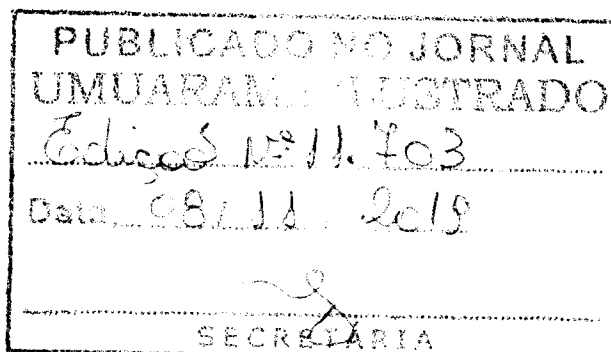 PUBLICADO NO JORNAL
UMUARAMA ILUSTRADO
Edição Nº 11.703
Data, 08/11/2019
SECRETARIA